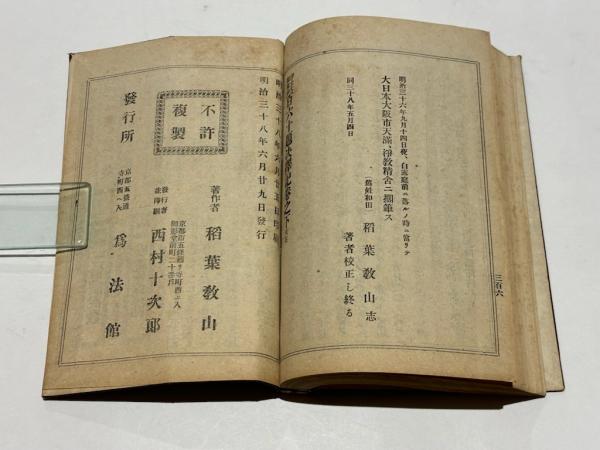 三百六
明治三十六年九月十四日夜、白露庭前ニ落ルノ時ニ當リテ
大日本大阪市天滿、淨敎精舍ニ擱筆ス
(舊姓和田)
稻葉敎山志
同三十八年五月四日
著者校正し終る
明治三十八年六月廿九日發行
不許
複製
著作者 稻葉敎山
發行者
西村十次郎
京都五條通
寺町西へ入
發行所 爲法館